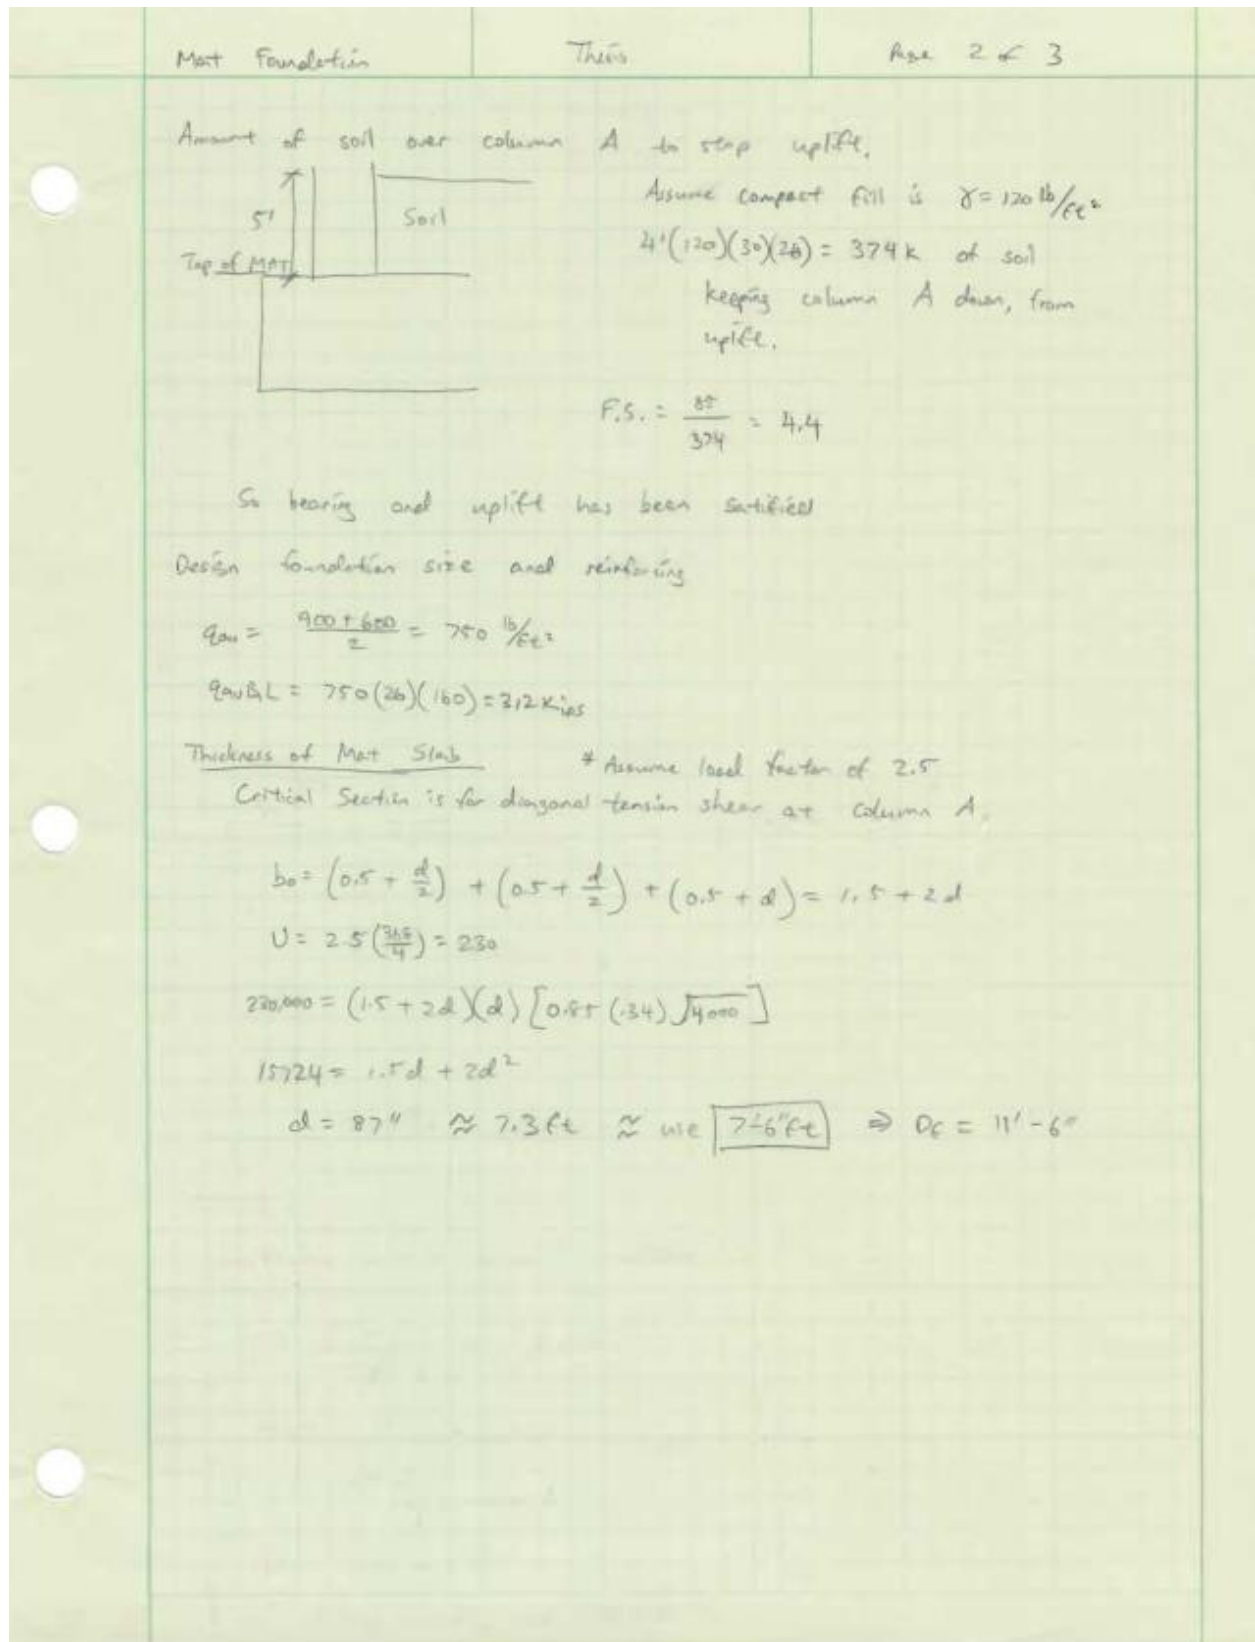 Mat Foundation Thesis Page 2 of 3
Amount of soil over column A to stop uplift.
5'
Soil
Top of MAT
Assume compact fill is γ = 120 lb/ft²
4'(120)(30)(26) = 374 k of soil
keeping column A down, from
uplift.
F.S. = 85/374 = 4.4
So bearing and uplift has been satified
Design foundation size and reinforcing
qav = (900 + 600)/2 = 750 lb/ft²
qavBL = 750(26)(160) = 312 Kips
Thickness of Mat Slab * Assume load factor of 2.5
Critical Section is for diagonal tension shear at column A.
bo = (0.5 + d/2) + (0.5 + d/2) + (0.5 + d) = 1.5 + 2d
U = 2.5(368/4) = 230
230,000 = (1.5 + 2d)(d)[0.85(.34)√4000]
15724 = 1.5d + 2d²
d = 87" ≈ 7.3 ft ≈ use 7'-6" ft ⇒ Df = 11'-6"